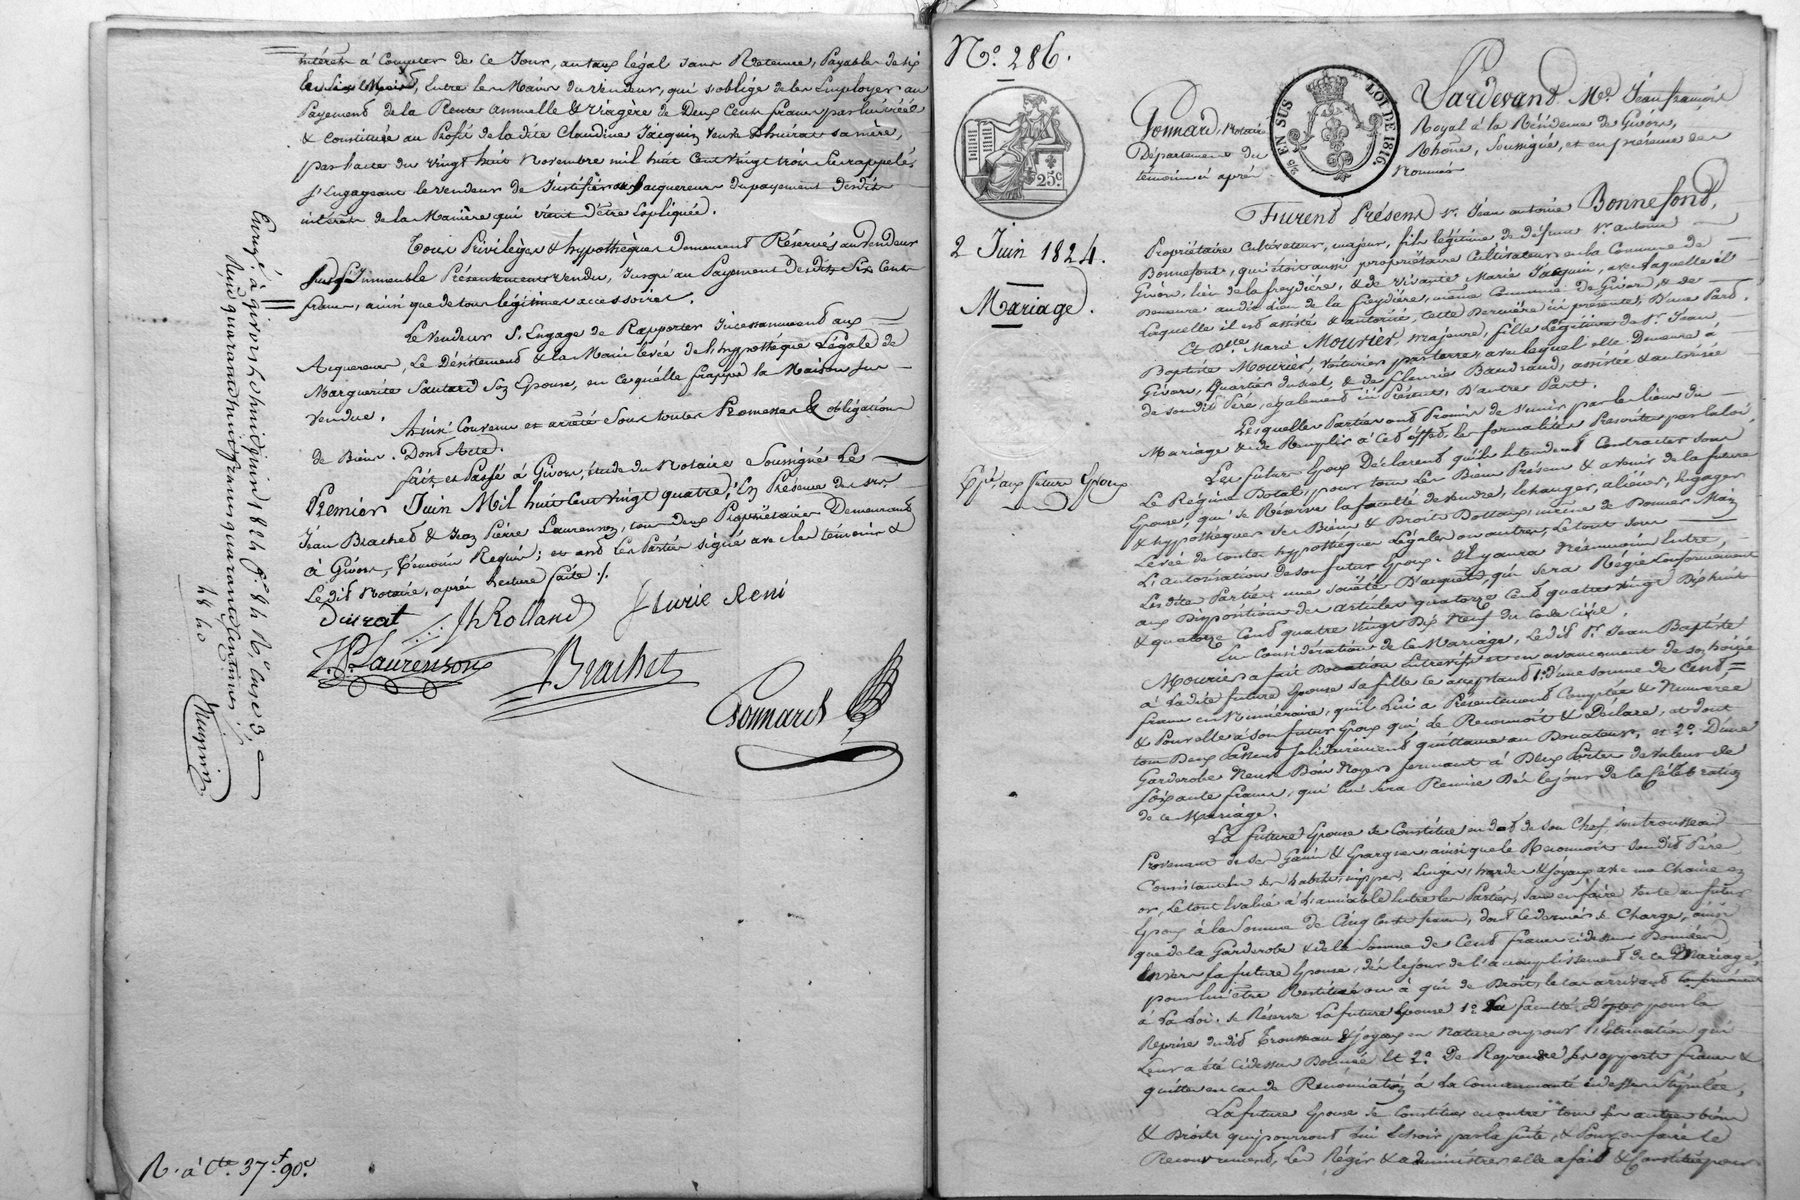 intérêts à Compter de ce Jour, au taux légal sans Retenue, Payables de six
en six Mois, Entre les Mains du vendeur, qui s'oblige de les Employer au
Payement de la Rente annuelle & viagère de Deux Cents francs par lui créée
& Constituée au Profit de ladite Claudine Jacquin veuve Dhuirat sa mère,
par hacte du vingt huit Novembre mil huit Cent vingt trois
s'Engageant le vendeur de Justifier au acquereur du payement desdits
intérêts de la Manière qui vient d'être Expliquée.
Tous Privilèges & hypothèques demeurent Réservés au vendeur
sur l'immeuble Présentement vendu, Jusqu'au Payement desdits Six Cents
francs, ainsi que de tous légitimes accessoires.
Le vendeur S'Engage de Rapporter Incessamment aux
Acquereurs, Le Désistement & la Main levée de l'hypothèque Légale de
Marguerite Sautard Son Epouse, en ce qu'elle frappe la Maison sus
vendue.
Ainsi Convenu et arrêté Sous toutes Promesses & obligations
de Biens. Dont Acte.
fait et Passé à Givors, Etude du Notaire Soussigné Le
Premier Juin Mil huit Cent vingt quatre, En Présence de srs
Jean Brachet & Jean Pierre Laurenson, tous deux Propriétaires Demeurant
à Givors, Témoins Requis; et ont les Parties signé avec les témoins &
Ledit Notaire, après lecture faite ./.
Duirat Jh Rolland Reni
J. P. Laurenson Brachet
Gonnard
Enregé à givors, le huit juin 1824 fo 84 Ro Case 3,
Reçu quarante huit francs quarante Centimes
48 40
R. à Cte. 37f. 90c.
No. 286.
25 c.
2 Juin 1824.
Mariage.
Epe. aux future Epoux
EN SUS
LOI DE 1816
Pardevant Me. Jean françois
Gonnard, Notaire Royal à la Résidence de Givors,
Département du Rhône, Soussigné, et en présence des
témoins ci après Nommés
Furent Présens sr. Jean antoine Bonnefond,
Propriétaire Cultivateur, majeur, fils légitime de défunt Sr. antoine
Bonnefont, qui étoit aussi propriétaire Cultivateur en la Commune de
Givors, lieu de la freydière, & de vivante Marie Jacquin, avec laquelle il
Demeure audit lieu de la freydière, même Commune de Givors, & de
Laquelle il est assisté & autorisé, cette Dernière ici présente, D'une Part.
Et Dlle. Marie Mourier, majeure, fille Légitime de Sr. Jean
Baptiste Mourier, voiturier par terre, avec lequel elle Demeure à
Givors, Quartier du Suel, & de fleurie Baudrand, assistée & autorisée
de son dit Père, également ici Présent, D'autre Part.
Lesquelles Parties ont Promis de s'unir par les liens du
Mariage & de Remplir à Cet effet, les formalités Prescrites par la loi.
Les future Epoux Déclarent qu'ils Entendent Contracter sous
Le Régime Dotal, pour tous les Biens Présens & avenir de la future
Epouse, qui se Réserve la faculté de vendre, Echanger, aliéner, Engager
& hypothéquer ses Biens & Droits Dottaux, même de Donner Main
Levée de toutes hypothèques Légales ou autres, le tout sous
L'autorisation de son futur Epoux. Il y aura Néanmoins Entre
Lesdites Parties une société D'acquets, qui sera Régie Conformément
aux Dispositions des articles quatorze Cent quatre vingt Dix huit
& quatorze Cent quatre vingt Dix Neuf du Code civil.
En Considération de ce Mariage, Ledit Sr. Jean Baptiste
Mourier a fait Donation Entrevifs et en avancement de son hoirie
à Ladite future Epouse sa fille ce acceptant 1o. d'une somme de Cent
francs en Numéraire, qu'il Lui a Présentement Comptée & Numérée
& Pour elle à son futur Epoux qui Le Reconnoit & Déclare, et dont
tous Deux Passent solidairement quittance au Donateur, et 2o. D'une
Garderobe Neuve Bois Noyer fermant à Deux Portes de valeur de
soixante francs, qui lui sera Remise Dès le jour de la Célébration
de ce Mariage.
La future Epouse se Constitue en dot de son Chef son trousseau
Provenant de ses Gains & Epargnes, ainsi que le Reconnoit son dit Père
Consistant en ses habits, nippes, Linges, hardes & Joyaux avec une Chaine en
or, Le tout Evalué à L'amiable Entre les Parties, sans en faire vente au futur
Epoux à la Somme de Cinq Cents francs, dont ce dernier se Charge, ainsi
que de la Garderobe & de la Somme de Cent francs cidessus Donnée,
Envers la future Epouse, dès le jour de l'accomplissement de ce Mariage,
pour lui être Restitué ou à qui de Droit, le cas arrivant Conformément
à La Loi. Se Réserve La future Epouse 1o. La faculté D'opter pour la
Reprise dudit Trousseau & Joyaux en Nature ou pour l'Estimation qui
Leur a été Cidessus Donnée Et 2o. De Reprendre ses apports francs &
quittes en cas de Renonciation à La Communauté cidessus Stipulée.
La future Epouse se Constitue en outre tous ses autres biens
& Droits qui pourront Lui Echoir par la suite, & Pour en faire le
Recouvrement, Les Régir & administrer elle a fait & Constitué pour